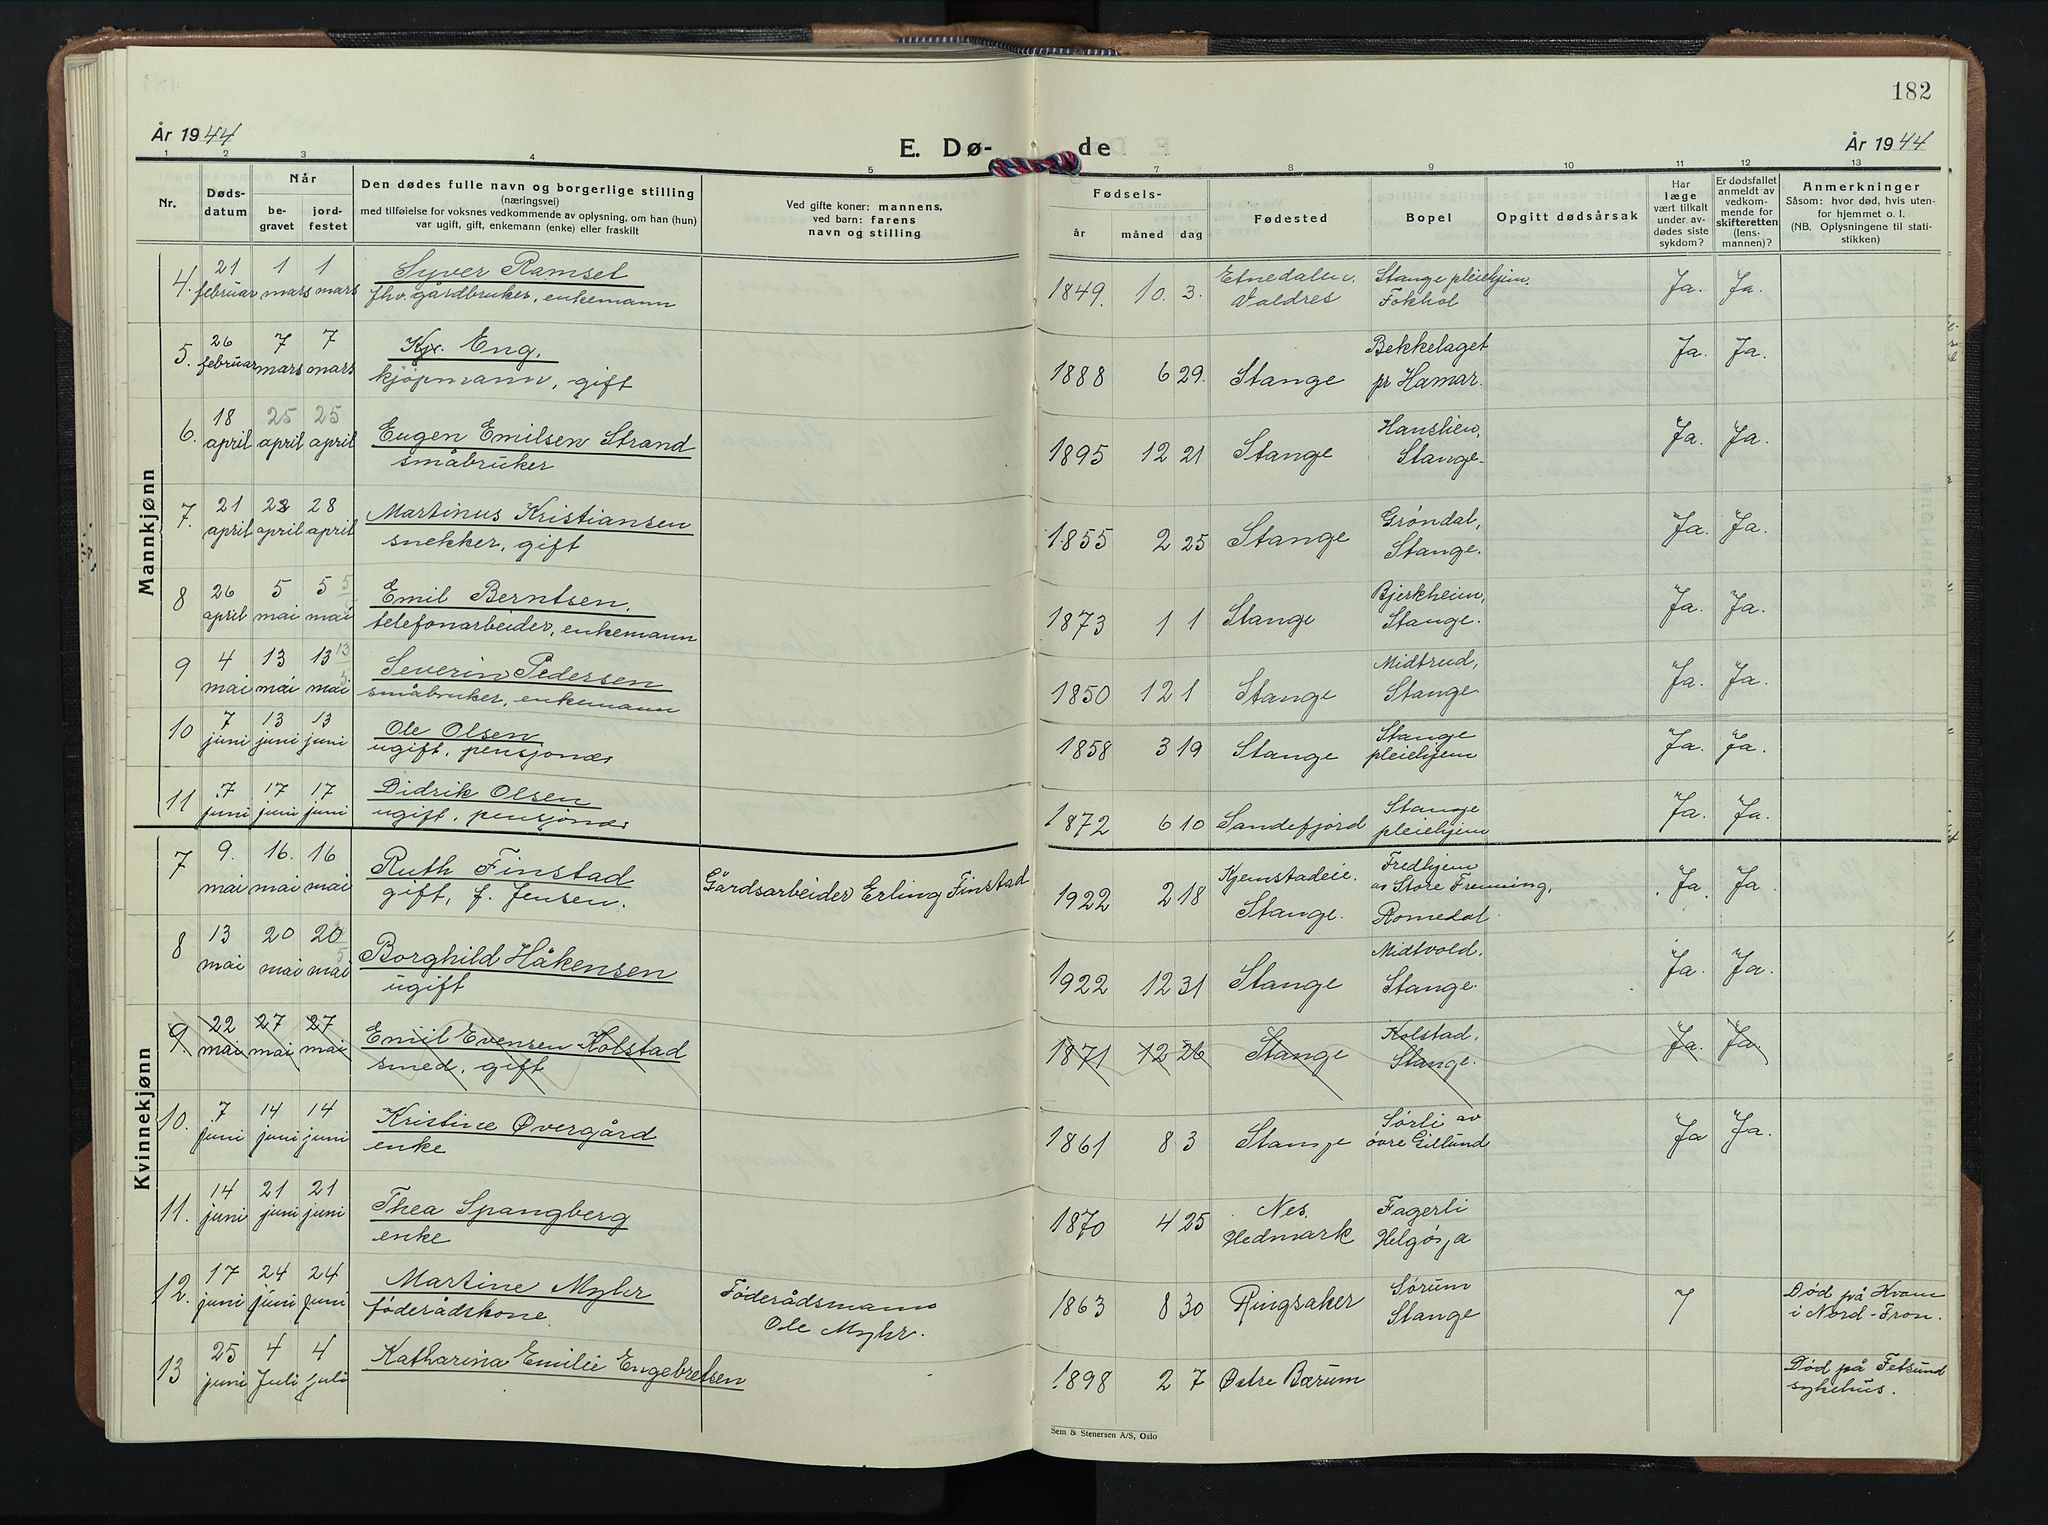 182
År 1944
E. Dø- de
År 1944
1 2 3 4 5 7 8 9 10 11 12 13
Nr.
Døds-
datum
Når
be-
gravet
jord-
festet
Den dødes fulle navn og borgerlige stilling
(næringsvei)
med tilføielse for voksnes vedkommende av oplysning, om han (hun)
var ugift, gift, enkemann (enke) eller fraskilt
Ved gifte koner: mannens,
ved barn: farens
navn og stilling
Fødsels-
år måned dag
Fødested
Bopel
Opgitt dødsårsak
Har
læge
vært tilkalt
under av-
dødes siste
sykdom?
Er dødsfallet
anmeldt av
vedkom-
mende for
skifteretten
(lens-
mannen)?
Anmerkninger
Såsom: hvor død, hvis uten-
for hjemmet o. l.
(NB. Oplysningene til stati-
stikken)
Mannkjønn
4. 21 februar 1 mars 1 mars Syver Ramset 1849. 10. 3. Etnedalen, Stange pleiehjem. Ja. Ja.
fhv. gårdbruker, enkemann Valdres Fokhol
5. 26 februar 7 mars 7 mars Kr. Eng. 1888 6 29. Stange Bekkelaget Ja. Ja.
kjøpmann, gift pr Hamar.
6. 18 april 25 april 25 april Eugen Emilsen Strand 1895 12 21 Stange Hanslien, Ja. Ja.
småbruker Stange.
7. 21 april 28 april 28 april Martinus Kristiansen 1855 2 25 Stange Grøndal, Ja. Ja.
snekker, gift Stange.
8 26 april 5 mai 5 mai 5/5 Emil Berntsen. 1873 1 1 Stange Bjerkheim, Ja. Ja.
telefonarbeider, enkemann Stange.
9 4 mai 13 mai 13 mai 13/5 Severin Pedersen 1850 12 1 Stange Midtrud, Ja. Ja.
småbruker, enkemann Stange.
10 7 juni 13 juni 13 juni Ole Olsen 1858 3 19 Stange Stange Ja. Ja.
ugift, pensjonær pleiehjem
11 7 juni 17 juni 17 juni Didrik Olsen 1872 6 10 Sandefjord Stange Ja. Ja.
ugift, pensjonær pleiehjem
Kvinnekjønn
7 9. mai 16. mai 16 mai Ruth Finstad Gårdsarbeider Erling Finstad 1922 2 18 Kjemstadeie. Fredhjem Ja. Ja.
gift, f. Jensen. Stange. av Store Frenning,
Romedal.
8 13 mai 20 mai 20 mai Borghild Håkensen 1922 12 31 Stange Midtvold. Ja. Ja.
ugift Stange.
9. 22 mai 27 mai 27 mai Emil Evensen Kolstad 1871 12 26 Stange Kolstad, Ja. Ja.
smed, gift Stange.
10. 7 juni 14 juni 14 juni Kristine Øvergård 1861 8 3 Stange Sørli av Ja Ja.
enke øvre Gillund
11. 14 juni 21 juni 21 juni Thea Spangberg 1870 4 25 Nes. Fagerli
enke Hedmark Helgøja
12. 17 juni 24 juni 24 juni Martine Myhr Føderådsmann 1863 8 30 Ringsaker Sørum ? Død på Kvam
føderådskone. Ole Myhr. Stange i Nord-Fron.
13 25 juni 4 Juli 4 juli Katharina Emilie Engebretsen 1898 2 7 Østre Bærum Død på Fetsund
sykehus.
Sem & Stenersen A/S, Oslo